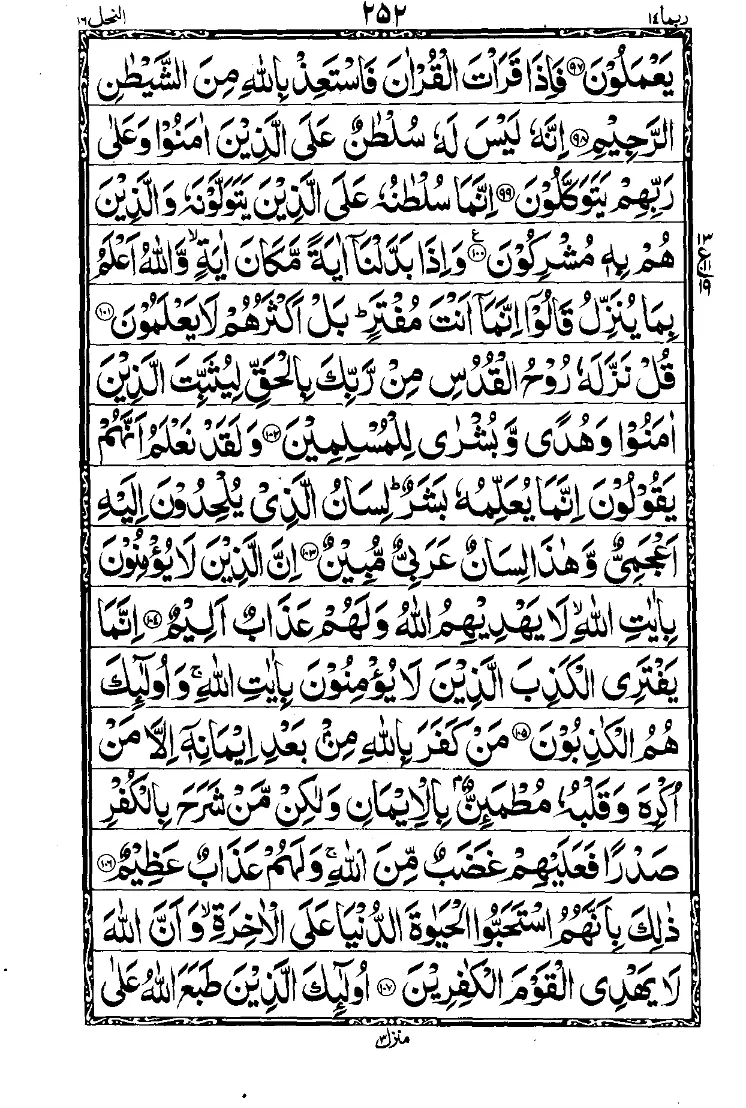 ربما ١٤ ٢٥٢ النحل ١٦
يَعْمَلُوْنَ ٩٧ فَاِذَا قَرَاْتَ الْقُرْاٰنَ فَاسْتَعِذْ بِاللّٰهِ مِنَ الشَّيْطٰنِ
الرَّجِيْمِ ٩٨ اِنَّهٗ لَيْسَ لَهٗ سُلْطٰنٌ عَلَى الَّذِيْنَ اٰمَنُوْا وَعَلٰى
رَبِّهِمْ يَتَوَكَّلُوْنَ ٩٩ اِنَّمَا سُلْطٰنُهٗ عَلَى الَّذِيْنَ يَتَوَلَّوْنَهٗ وَالَّذِيْنَ
هُمْ بِهٖ مُشْرِكُوْنَ ١٠٠ ع وَاِذَا بَدَّلْنَاۤ اٰيَةً مَّكَانَ اٰيَةٍۙ وَّاللّٰهُ اَعْلَمُ
١٣ ع ١١ ١٩
بِمَا يُنَزِّلُ قَالُوْۤا اِنَّمَاۤ اَنْتَ مُفْتَرٍؕ بَلْ اَكْثَرُهُمْ لَا يَعْلَمُوْنَ ١٠١
قُلْ نَزَّلَهٗ رُوْحُ الْقُدُسِ مِنْ رَّبِّكَ بِالْحَقِّ لِيُثَبِّتَ الَّذِيْنَ
اٰمَنُوْا وَهُدًى وَّبُشْرٰى لِلْمُسْلِمِيْنَ ١٠٢ وَلَقَدْ نَعْلَمُ اَنَّهُمْ
يَقُوْلُوْنَ اِنَّمَا يُعَلِّمُهٗ بَشَرٌؕ لِسَانُ الَّذِيْ يُلْحِدُوْنَ اِلَيْهِ
اَعْجَمِيٌّ وَّهٰذَا لِسَانٌ عَرَبِيٌّ مُّبِيْنٌ ١٠٣ اِنَّ الَّذِيْنَ لَا يُؤْمِنُوْنَ
بِاٰيٰتِ اللّٰهِۙ لَا يَهْدِيْهِمُ اللّٰهُ وَلَهُمْ عَذَابٌ اَلِيْمٌ ١٠٤ اِنَّمَا
يَفْتَرِى الْكَذِبَ الَّذِيْنَ لَا يُؤْمِنُوْنَ بِاٰيٰتِ اللّٰهِۚ وَاُولٰٓئِكَ
هُمُ الْكٰذِبُوْنَ ١٠٥ مَنْ كَفَرَ بِاللّٰهِ مِنْۢ بَعْدِ اِيْمَانِهٖۤ اِلَّا مَنْ
اُكْرِهَ وَقَلْبُهٗ مُطْمَئِنٌّۢ بِالْاِيْمَانِ وَلٰكِنْ مَّنْ شَرَحَ بِالْكُفْرِ
صَدْرًا فَعَلَيْهِمْ غَضَبٌ مِّنَ اللّٰهِۚ وَلَهُمْ عَذَابٌ عَظِيْمٌ ١٠٦
ذٰلِكَ بِاَنَّهُمُ اسْتَحَبُّوا الْحَيٰوةَ الدُّنْيَا عَلَى الْاٰخِرَةِۙ وَاَنَّ اللّٰهَ
لَا يَهْدِى الْقَوْمَ الْكٰفِرِيْنَ ١٠٧ اُولٰٓئِكَ الَّذِيْنَ طَبَعَ اللّٰهُ عَلٰى
منزل ٣